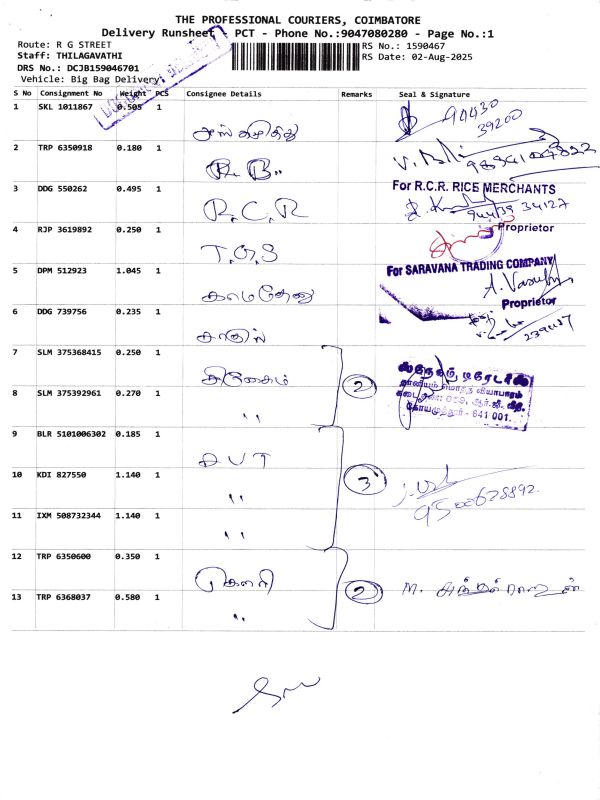 THE PROFESSIONAL COURIERS, COIMBATORE
Delivery Runsheet - PCT - Phone No.:9047080280 - Page No.:1
Route: R G STREET
Staff: THILAGAVATHI
DRS No.: DCJB159046701
Vehicle: Big Bag Delivery
RS No.: 1590467
RS Date: 02-Aug-2025
S No Consignment No Weight PCS Consignee Details Remarks Seal & Signature
1 SKL 1011867 0.505 1 94430
39200
2 TRP 6350918 0.180 1 R. B..
3 DDG 550262 0.495 1 R.C.R For R.C.R. RICE MERCHANTS
94439 34127
Proprietor
4 RJP 3619892 0.250 1 T.O.S
5 DPM 512923 1.045 1 காமதேனு For SARAVANA TRADING COMPANY
Proprietor
6 DDG 739756 0.235 1
7 SLM 375368415 0.250 1 2 ஸ்நேகம் டிரேடர்ஸ்
தானியம் மொத்த வியாபாரம்
8 SLM 375392961 0.270 1 ,, கடை எண்: 059, ஆர்.ஜி. வீதி,
கோயமுத்தூர் - 641 001.
9 BLR 5101006302 0.185 1
10 KDI 827550 1.140 1 ,, 3
11 IXM 508732344 1.140 1 ,,
12 TRP 6350600 0.350 1 கௌரி 2 M.
13 TRP 6368037 0.580 1 ,,